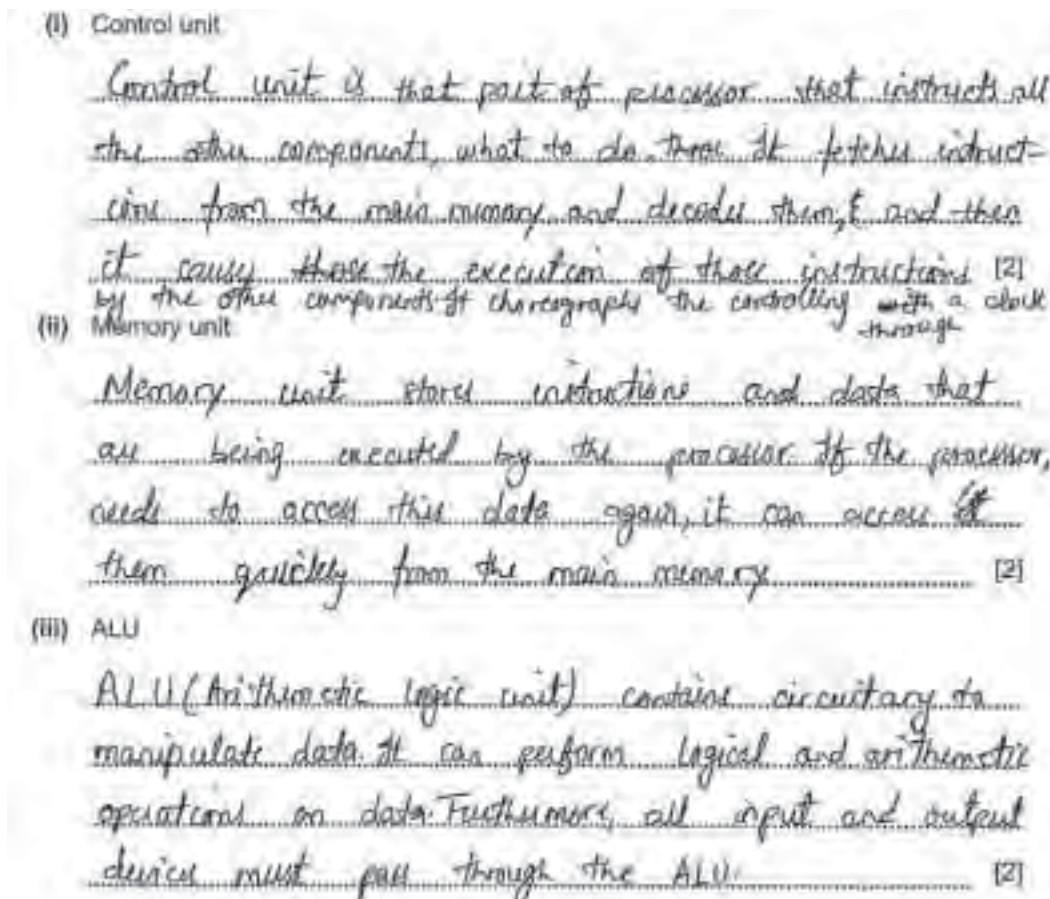 (i) Control unit
Control unit is that part of processor that instructs all
the other components, what to do. These It fetches instruct-
ions from the main memory and decodes them, & and then
it causes those the execution of those instructions [2]
by the other components. It choreographs the controlling with a clock
through
(ii) Memory unit
Memory unit stores instructions and data that
are being executed by the processor. If the processor,
needs to access this data again, it can access it
them quickly from the main memory [2]
(iii) ALU
ALU (Arithmetic logic unit) contains circuitary to
manipulate data. It can perform logical and arithmetic
operations on data. Furthermore, all input and output
devices must pass through the ALU. [2]